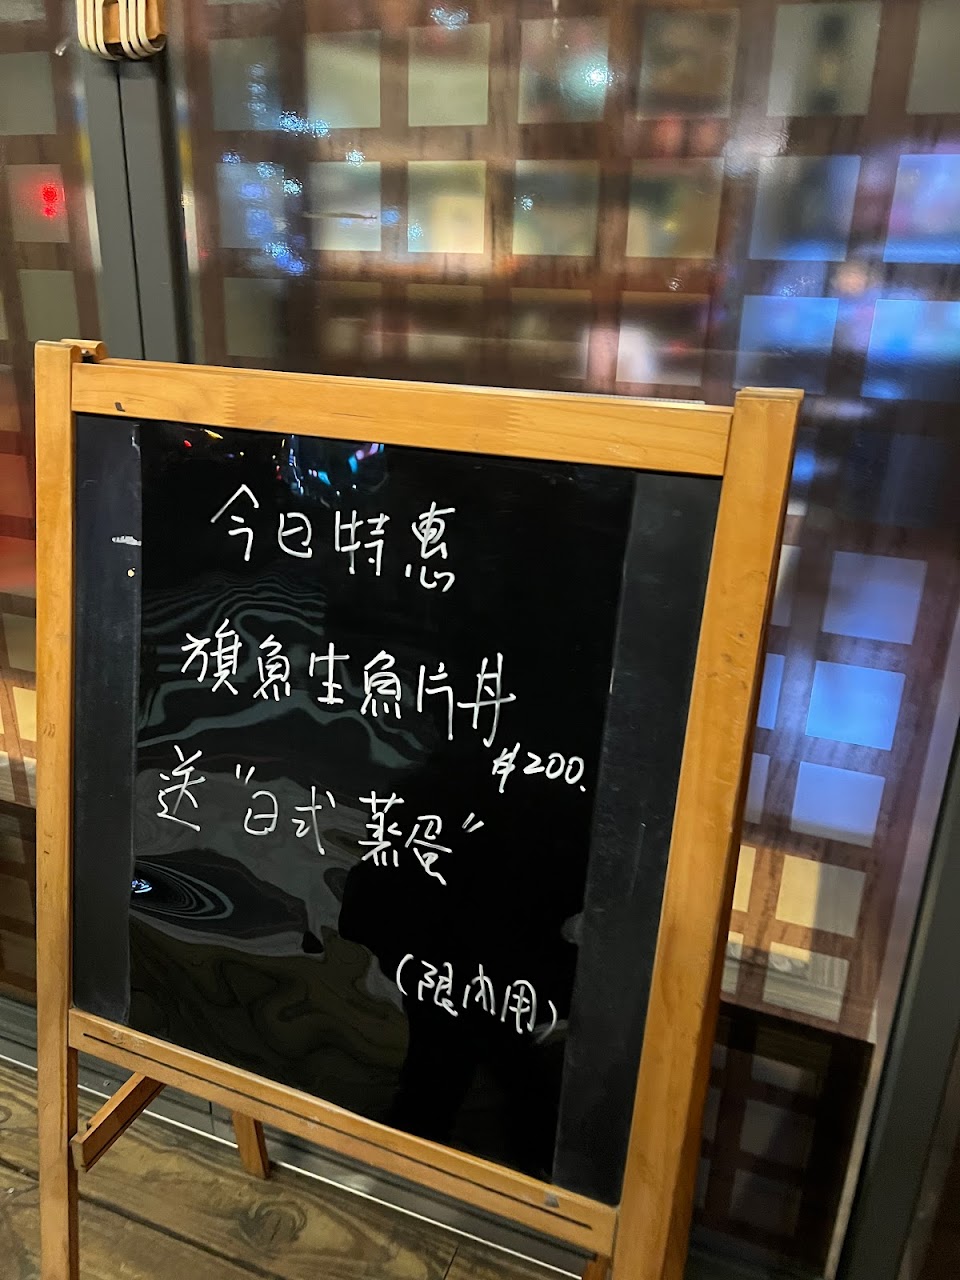 今日特惠
旗魚生魚片丼
$200.
送"日式蒸蛋"
(限內用)